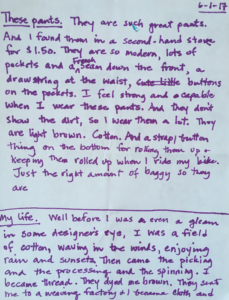 6-1-17
These pants. They are such great pants.
And I found them in a second-hand store
for $1.50. They are so modern, lots of
pockets and a French seam down the front, a
drawstring at the waist, cute little buttons
on the pockets. I feel strong and capable
when I wear these pants. And they don't
show the dirt, so I wear them a lot. They
are light brown. Cotton. And a strap/button
thing on the bottom for rolling them up &
keeping them rolled up when I ride my bike.
Just the right amount of baggy so they
are
My life. Well before I was even a gleam
in some designer's eye, I was a field
of cotton, waving in the winds, enjoying
rain and sunsets. Then came the picking
and the processing and the spinning. I
became thread. They dyed me brown. They sent
me to a weaving factory & I became cloth and